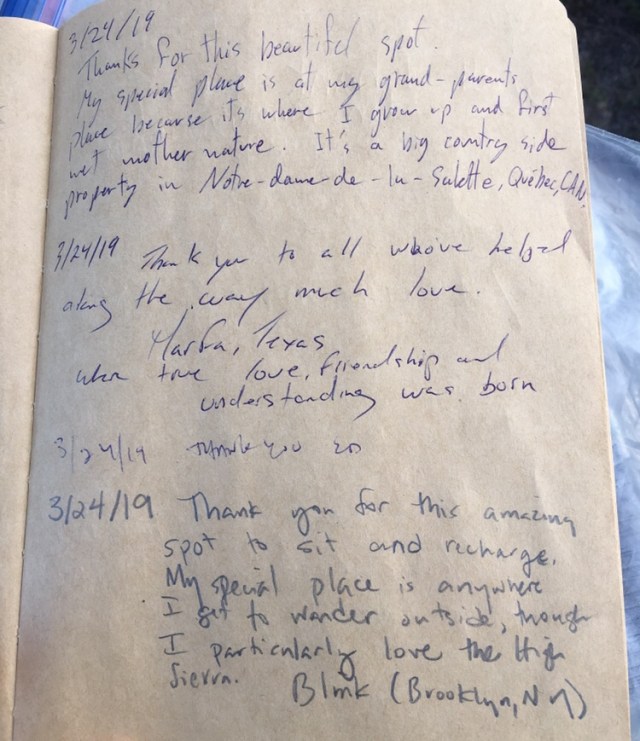 3/24/19
Thanks for this beautiful spot.
My special place is at my grand-parents
place because its where I grow up and first
met mother nature. It's a big country side
property in Notre-dame-de-la-Salette, Québec, CAN.
3/24/19 Thank you to all whove helped
along the way much love.
Marfa, Texas
when true love, friendship and
understanding was born
3/24/19 THANK YOU
3/24/19 Thank you for this amazing
spot to sit and recharge.
My special place is anywhere
I get to wander outside, though
I particularly love the High
Sierra. Blink (Brooklyn, NY)